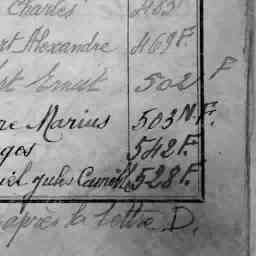 Charles 483
rt Alexandre 469 F.
rt Emile 502 F
re Marius 503 N.F.
ges 542 F.
iel Jules Camille 528 F.
après la lettre D.